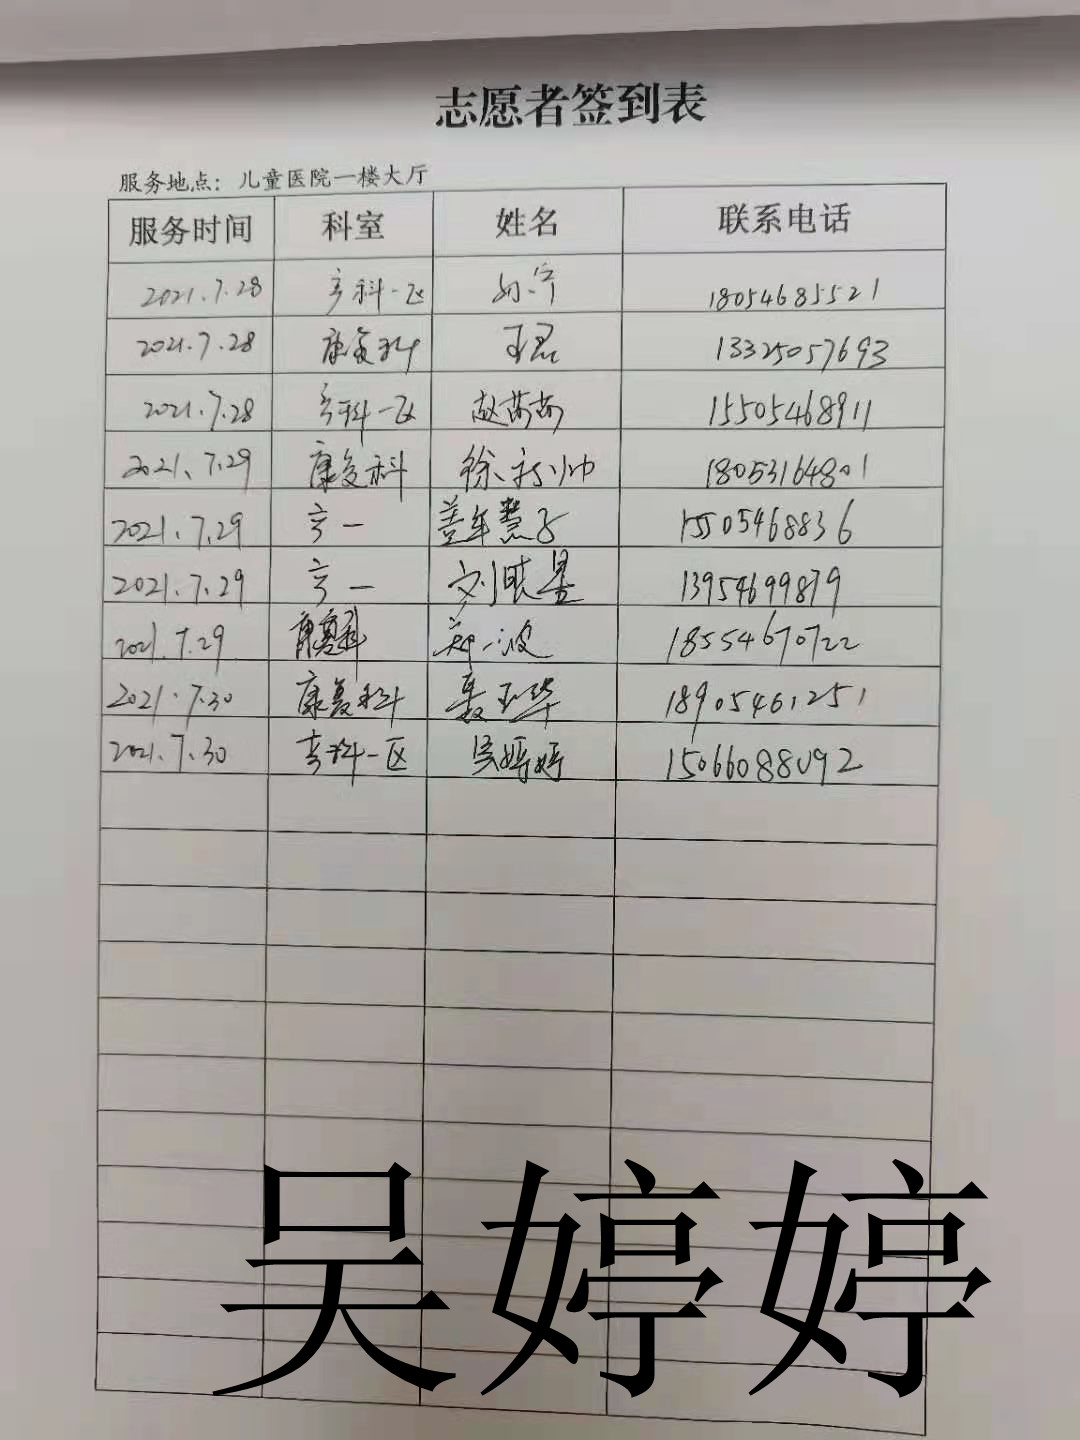 志愿者签到表
服务地点：儿童医院一楼大厅
服务时间 科室 姓名 联系电话
2021.7.28 产科一区 18054685521
2021.7.28 康复科 王君 13325057693
2021.7.28 产科一区 赵苗苗 15505468911
2021.7.29 康复科 徐 帅 18053164801
2021.7.29 产一 15505468836
2021.7.29 产一 刘 星 13954699879
2021.7.29 康复科 郑一波 18554670722
2021.7.30 康复科 聂玉华 18905461251
2021.7.30 产科一区 吴婷婷 15066088092
吴婷婷